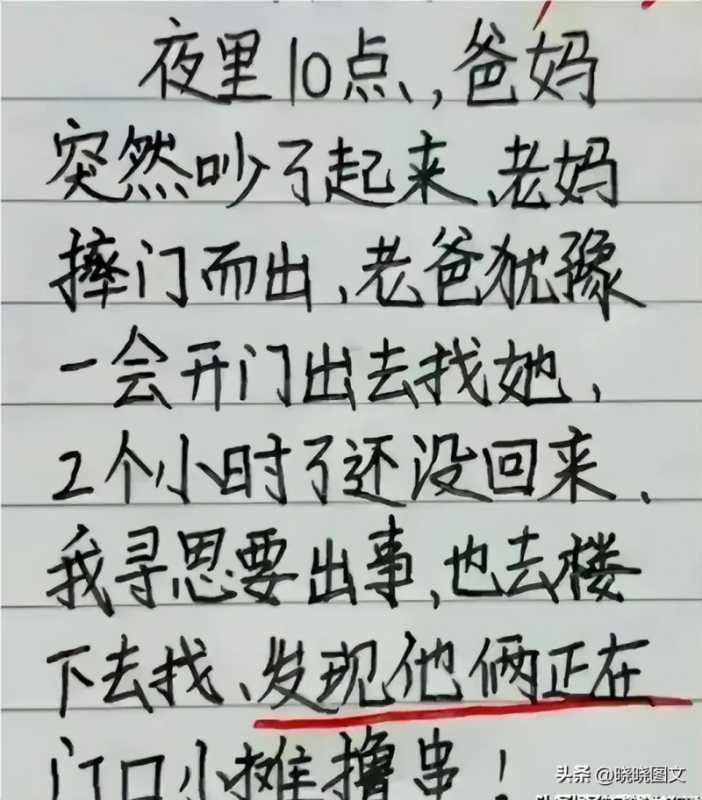 夜里10点，爸妈
突然吵了起来、老妈
摔门而出、老爸犹豫
一会开门出去找她、
2个小时了还没回来、
我寻思要出事，也去楼
下去找、发现他俩正在
门口小摊撸串！
头条 @晓晓图文